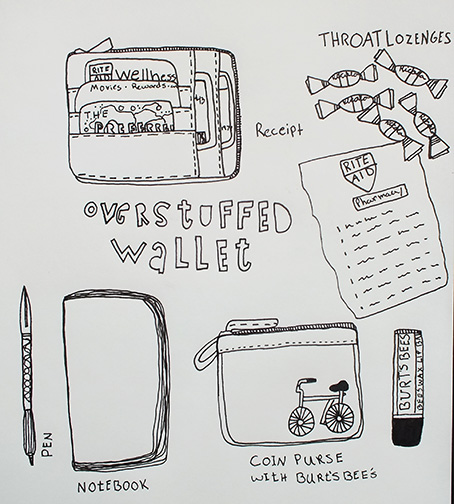 THROAT LOZENGES
RITE
AID
Wellness
Movies. Rewards.
THE
PREFERRED
Receipt
RITE
AID
Pharmacy
OVERSTUFFED
WALLET
PEN
NOTEBOOK
BURT'S BEES
BEESWAX LIP
COIN PURSE
WITH BURT'S BEE'S